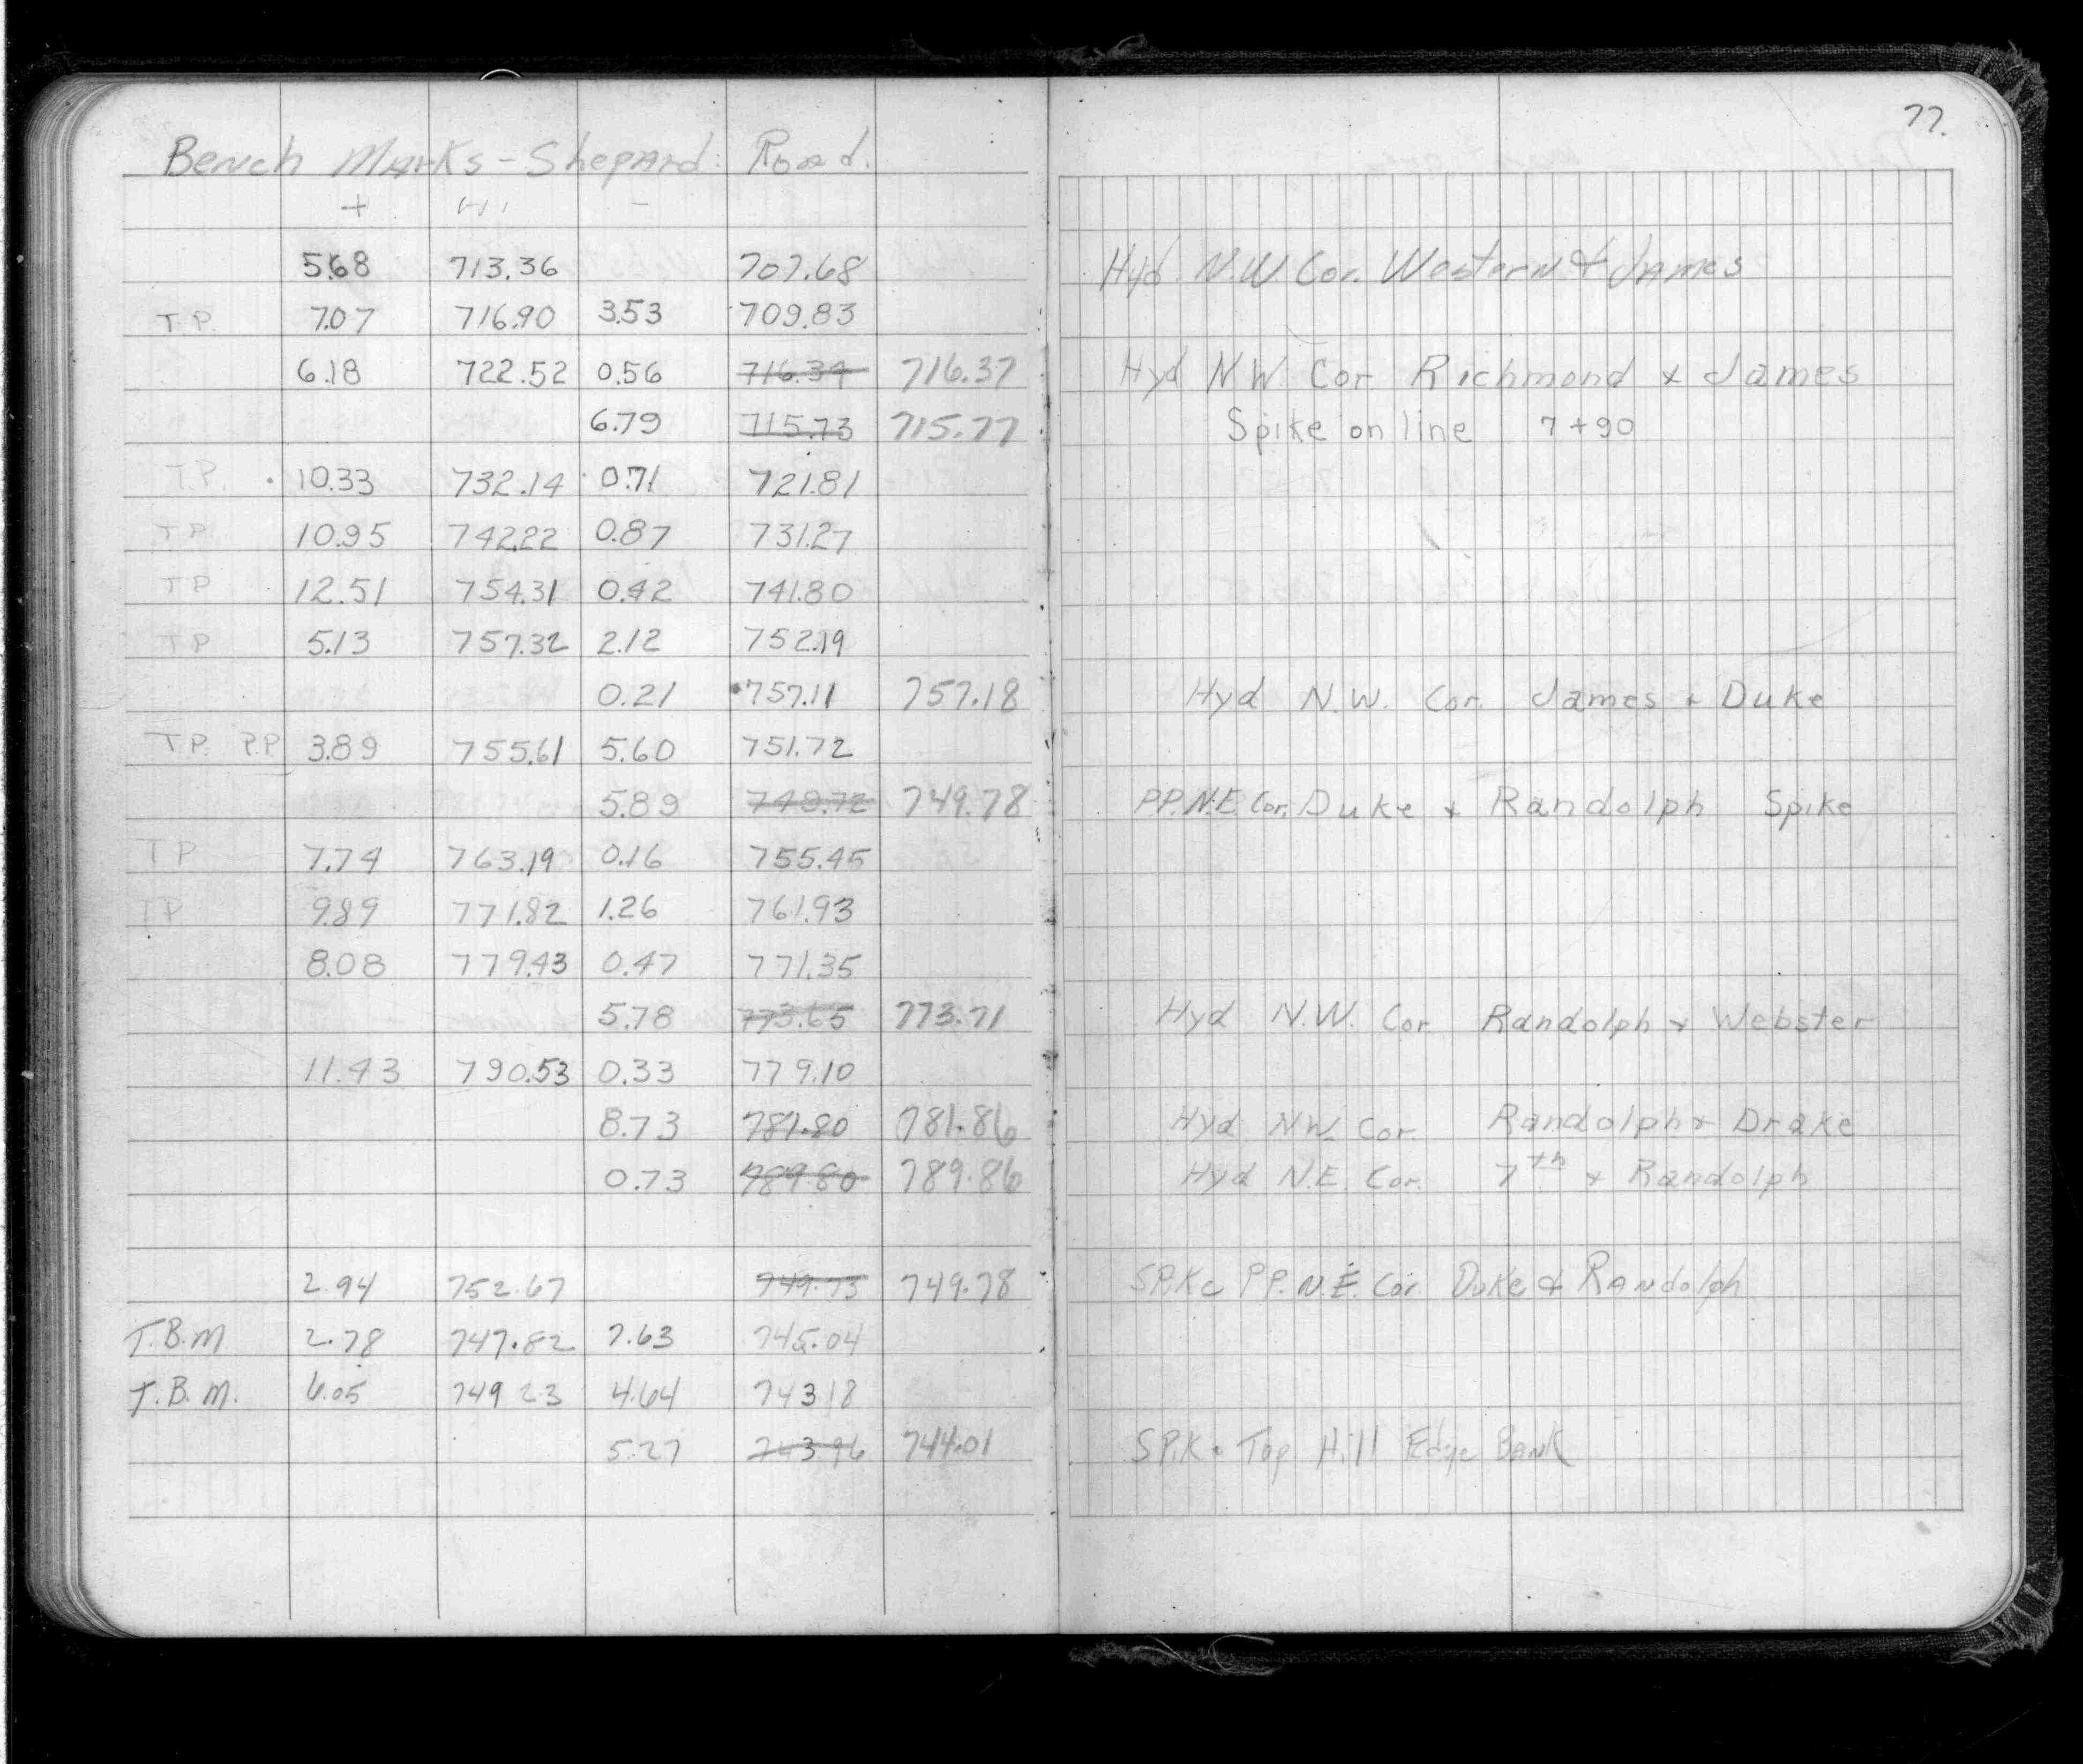 77.
Bench Marks - Shepard Road.
+ H I -
5.68 713.36 707.68 Hyd. N.W. Cor. Western & James
T.P. 7.07 716.90 3.53 709.83
6.18 722.52 0.56 716.34 716.37 Hyd N W Cor Richmond & James
6.79 715.73 715.77 Spike on line 7+90
T.P. 10.33 732.14 0.71 721.81
T P 10.95 742.22 0.87 731.27
T P 12.51 754.31 0.42 741.80
T P 5.13 757.32 2.12 752.19
0.21 757.11 757.18 Hyd N.W. Cor. James & Duke
T.P. P.P 3.89 755.61 5.60 751.72
5.89 749.72 749.78 P.P. N.E. Cor. Duke & Randolph Spike
T P 7.74 763.19 0.16 755.45
T P 9.89 771.82 1.26 761.93
8.08 779.43 0.47 771.35
5.78 773.65 773.71 Hyd N.W. Cor Randolph & Webster
11.43 790.53 0.33 779.10
8.73 781.80 781.86 Hyd N.W. Cor. Randolph & Drake
0.73 789.80 789.86 Hyd N.E. Cor. 7th & Randolph
2.94 752.67 749.73 749.78 SPike P.P. N.E. Cor. Duke & Randolph
T.B.M. 2.78 747.82 7.63 745.04
T.B.M. 6.05 749 23 4.64 743 18
5.27 743.96 744.01 SPike Top Hill Edge Bank